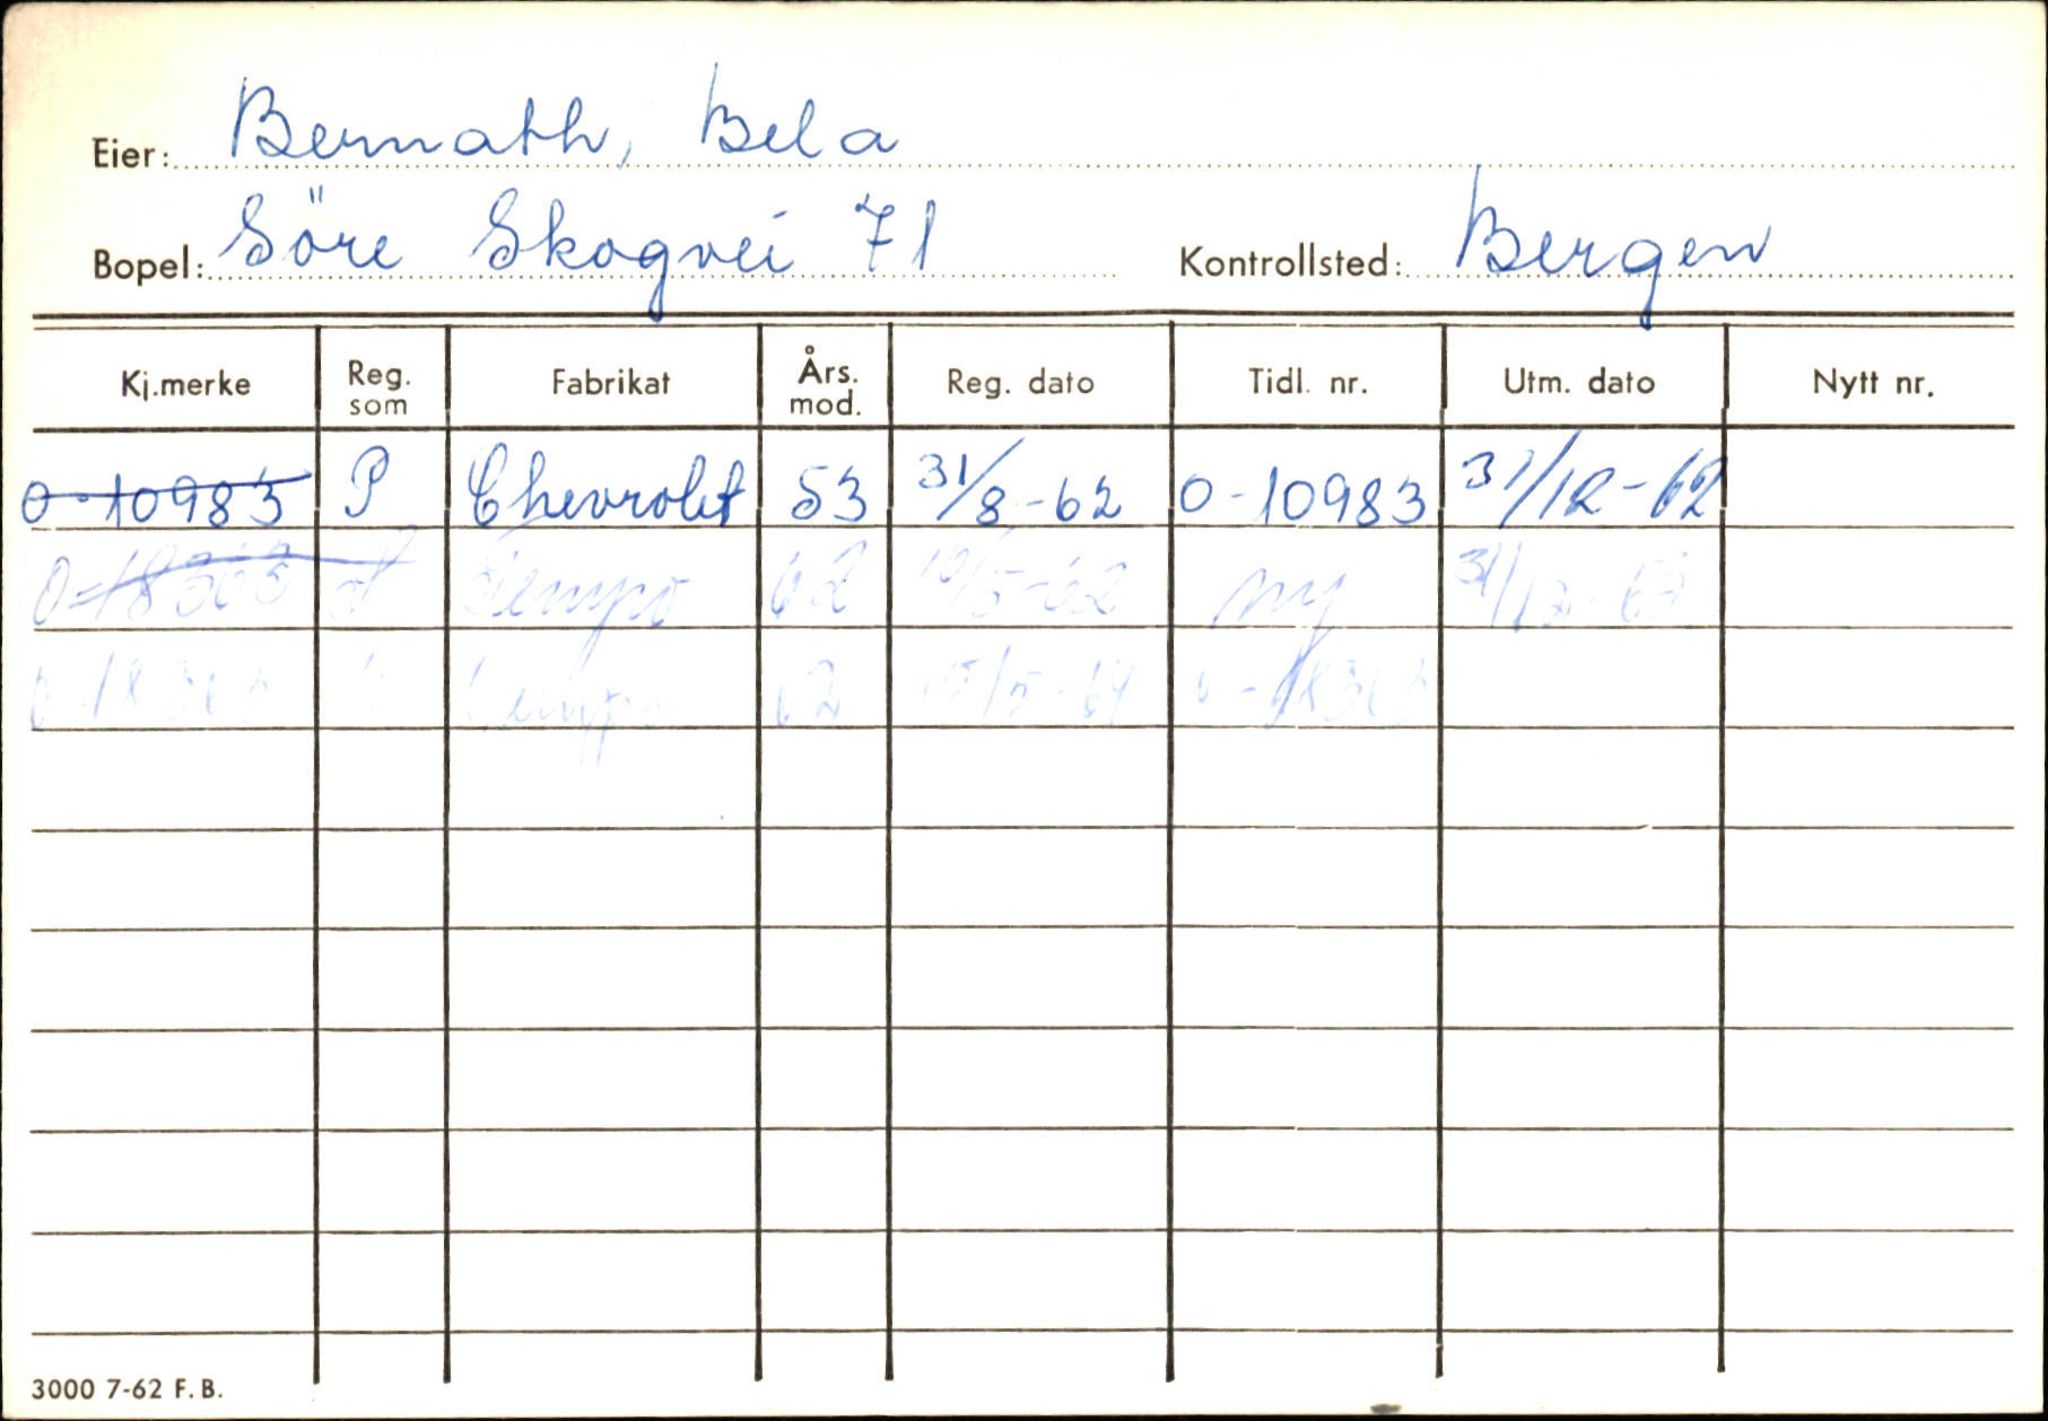 Eier: Bernath, Bela
Bopel: Söre Skogvei 71 Kontrollsted: Bergen
Kj.merke Reg. som Fabrikat Års. mod. Reg. dato Tidl. nr. Utm. dato Nytt nr.
O-10983 P Chevrolet 53 31/8-62 O-10983 31/12-62
O-18363 Tempo 62 10/5-62 ny 31/12-63
O-18363 Tempo 62 15/5-64 O-18363
3000 7-62 F.B.